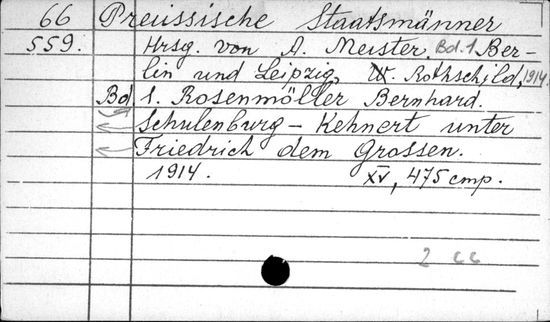 66 Preussische Staatsmänner
559. Hrsg. von A. Meister. Bd. 1 Ber-
lin und Leipzig, W. Rothschild, 1914.
Bd 1. Rosenmöller Bernhard.
Schulenburg - Kehnert unter
Friedrich dem Grossen.
1914. XV, 475 стр.
2